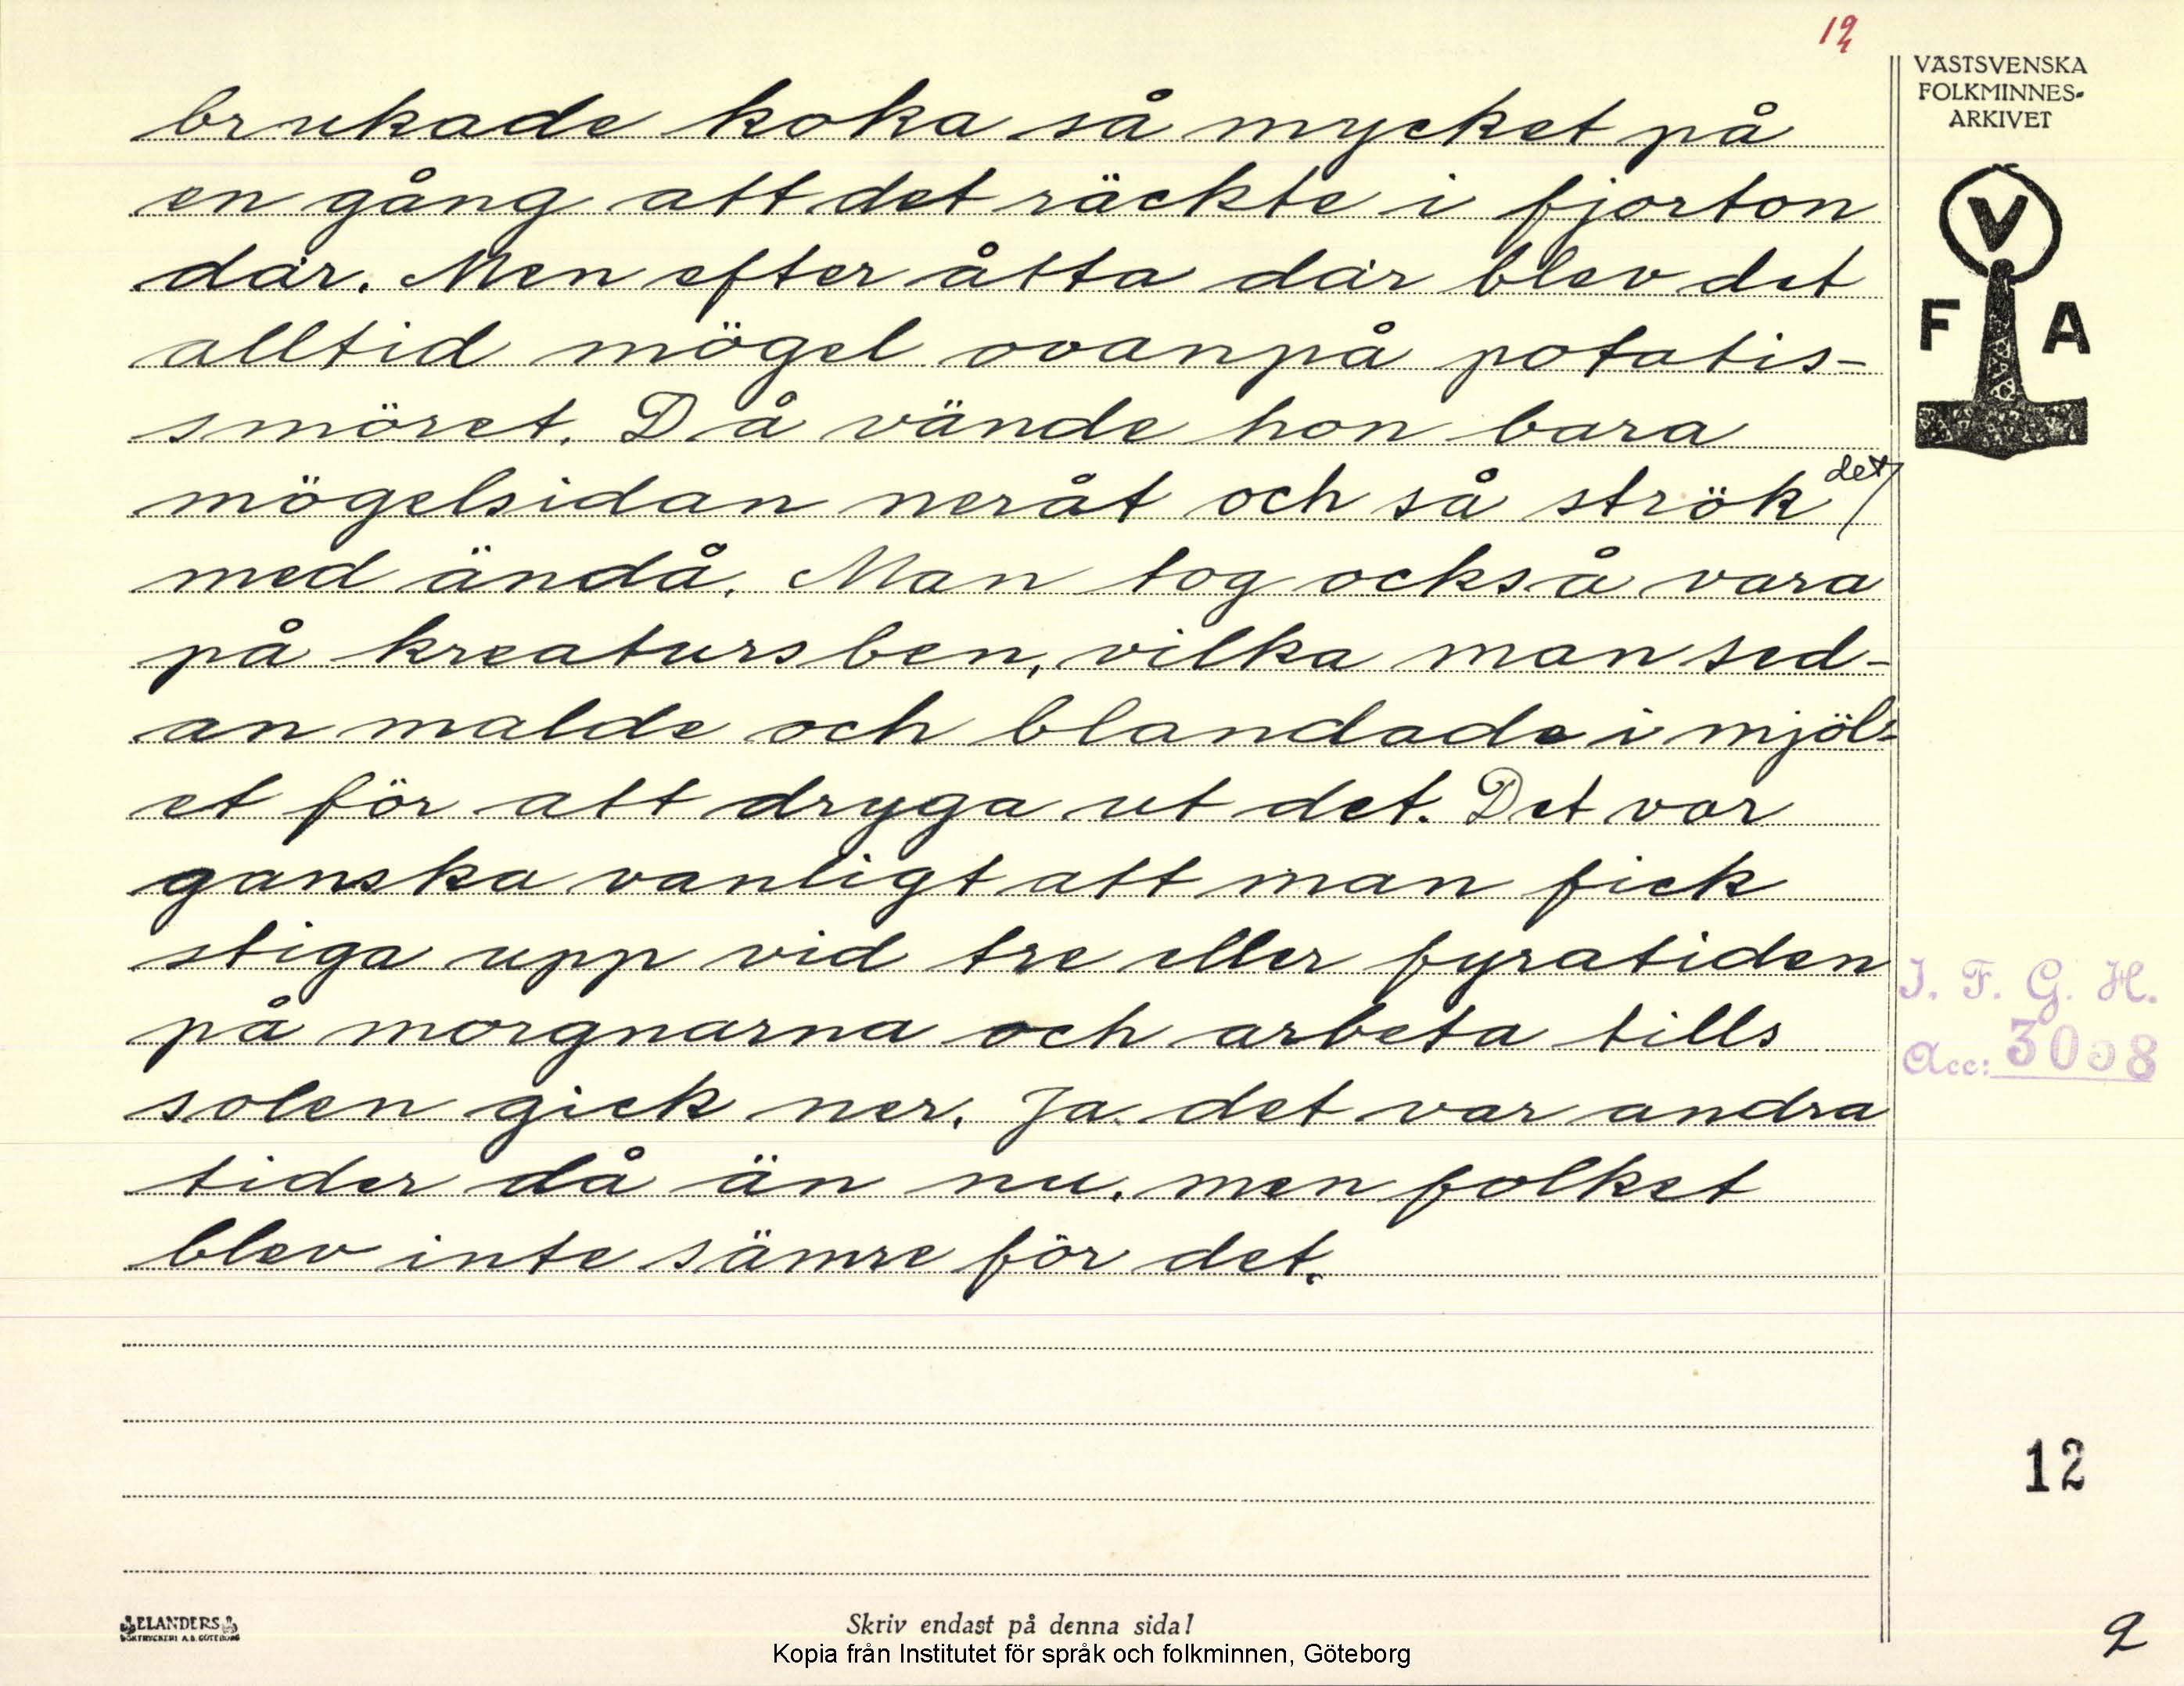 12
VÄSTSVENSKA
FOLKMINNES-
ARKIVET
V
F A
brukade koka så mycket på
en gång att det räckte i fjorton
dar. Men efter åtta dar blev det
alltid mögel ovanpå potatis-
smöret. Då vände hon bara
mögelsidan neråt och så strök det
med ändå. Man tog också vara
på kreatursben, vilka man sed-
an malde och blandade i mjöl-
et för att dryga ut det. Det var
ganska vanligt att man fick
stiga upp vid tre eller fyratiden
på morgnarna och arbeta tills
solen gick ner. Ja det var andra
tider då än nu, men folket
blev inte sämre för det.
I. F. G. H.
Acc: 3058
12
ELANDERS
BOKTRYCKERI A.B. GÖTEBORG
Skriv endast på denna sida!
Kopia från Institutet för språk och folkminnen, Göteborg
2